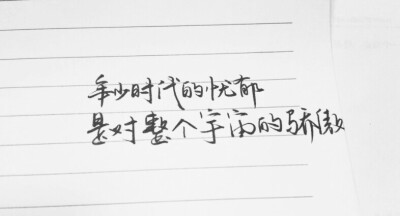 年少时代的忧郁
是对整个宇宙的骄傲